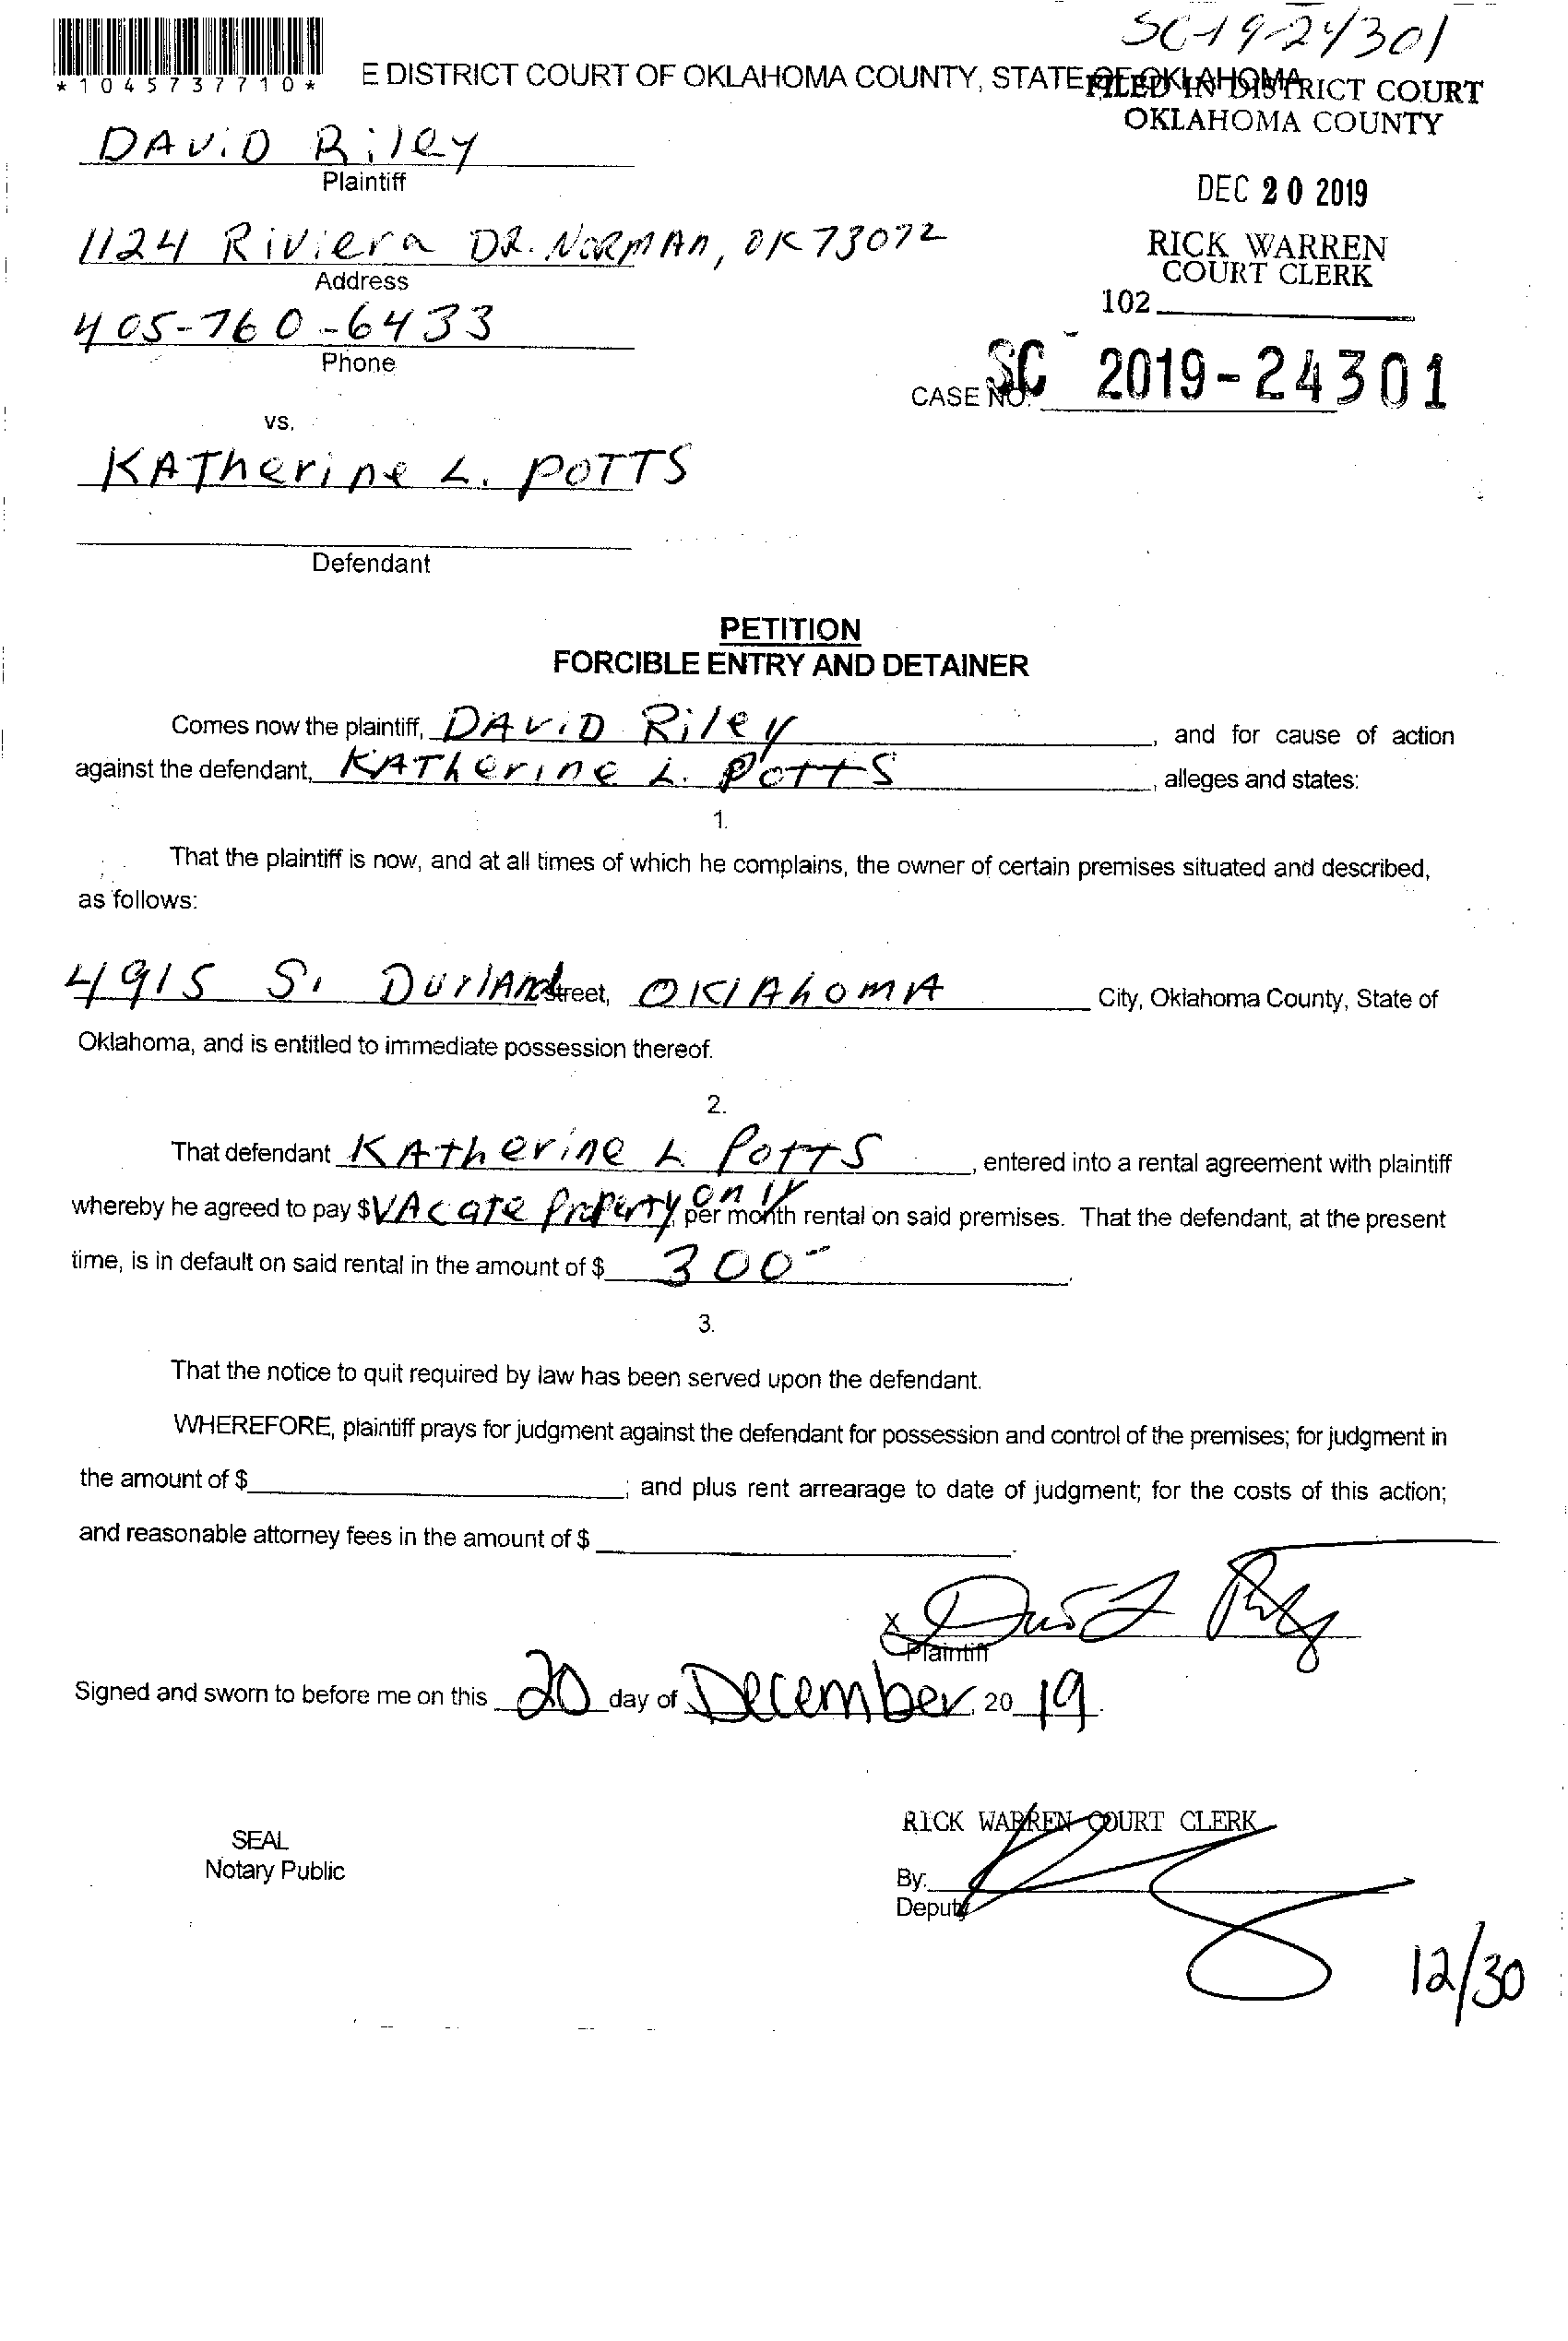 SC-19-24301
*1045737710*
E DISTRICT COURT OF OKLAHOMA COUNTY, STATE OF OKLAHOMA
FILED IN DISTRICT COURT
OKLAHOMA COUNTY
DAViD Riley
Plaintiff
DEC 20 2019
1124 Riviera DR. NORMAn, OK 73072
Address
RICK WARREN
COURT CLERK
102
405-760-6433
Phone
CASE NO. SC 2019-24301
vs.
KATherine L. POTTS
Defendant
PETITION
FORCIBLE ENTRY AND DETAINER
Comes now the plaintiff, DAViD Riley, and for cause of action
against the defendant, KATherine L. PottS, alleges and states:
1.
That the plaintiff is now, and at all times of which he complains, the owner of certain premises situated and described,
as follows:
4915 S. DurlAnd Street, OKlAhomA City, Oklahoma County, State of
Oklahoma, and is entitled to immediate possession thereof.
2.
That defendant KAtherine L PottS, entered into a rental agreement with plaintiff
whereby he agreed to pay $ VAcate Property only per month rental on said premises. That the defendant, at the present
time, is in default on said rental in the amount of $ 300-.
3.
That the notice to quit required by law has been served upon the defendant.
WHEREFORE, plaintiff prays for judgment against the defendant for possession and control of the premises; for judgment in
the amount of $; and plus rent arrearage to date of judgment; for the costs of this action;
and reasonable attorney fees in the amount of $.
X
Plaintiff
Signed and sworn to before me on this 20 day of December, 20 19.
RICK WARREN COURT CLERK
SEAL
Notary Public
By:
Deputy
12/30